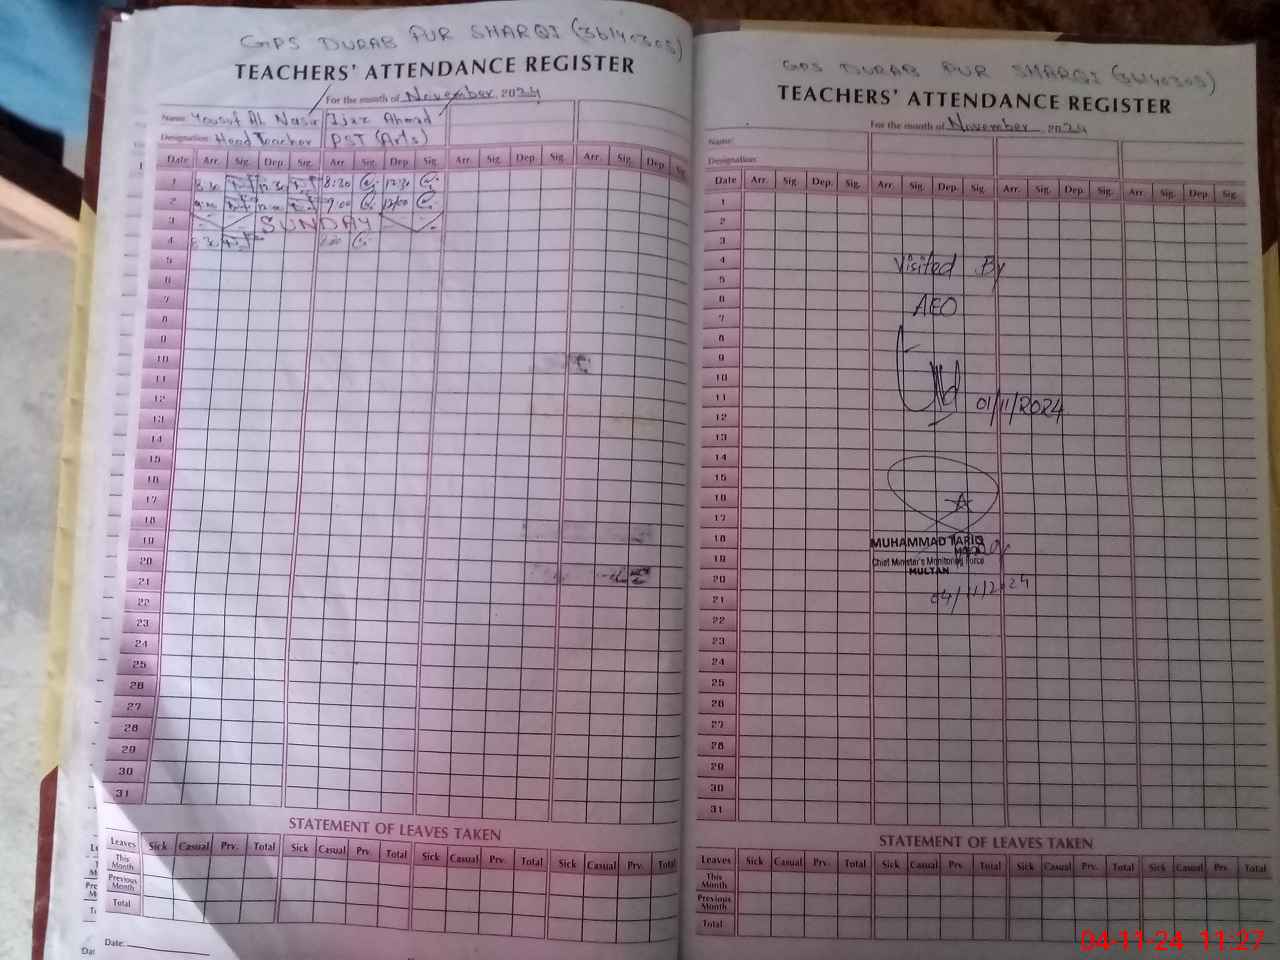 GPS DURAB PUR SHARQI
TEACHERS' ATTENDANCE REGISTER
For the month of November 2024
Name: Yousuf Al Nasir Ijaz Ahmad
Designation: Head Teacher PST (Arts)
Date Arr. Sig. Dep. Sig. Arr. Sig. Dep. Sig. Arr. Sig. Dep. Sig. Arr. Sig. Dep. Sig.
1 8:30 12:30 8:30 12:30
2 9:00 12:00 9:00 12:00
3 SUNDAY
4
5
6
7
8
9
10
11
12
13
14
15
16
17
18
19
20
21
22
23
24
25
26
27
28
29
30
31
STATEMENT OF LEAVES TAKEN
Leaves Sick Casual Prv. Total Sick Casual Prv. Total Sick Casual Prv. Total Sick Casual Prv. Total
This Month
Previous Month
Total
Date:
GPS DURAB PUR SHARQI
TEACHERS' ATTENDANCE REGISTER
For the month of November 2024
Name:
Designation:
Date Arr. Sig. Dep. Sig. Arr. Sig. Dep. Sig. Arr. Sig. Dep. Sig. Arr. Sig. Dep. Sig.
1
2
3
4
Visited By
5
6
AEO
7
8
9
10
11
01/11/2024
12
13
14
15
16
17
18
MUHAMMAD TARIQ
19
Chief Minister's Monitoring Force
MULTAN
20
04/11/2024
21
22
23
24
25
26
27
28
29
30
31
STATEMENT OF LEAVES TAKEN
Leaves Sick Casual Prv. Total Sick Casual Prv. Total Sick Casual Prv. Total Sick Casual Prv. Total
This Month
Previous Month
Total
04-11-24 11:27